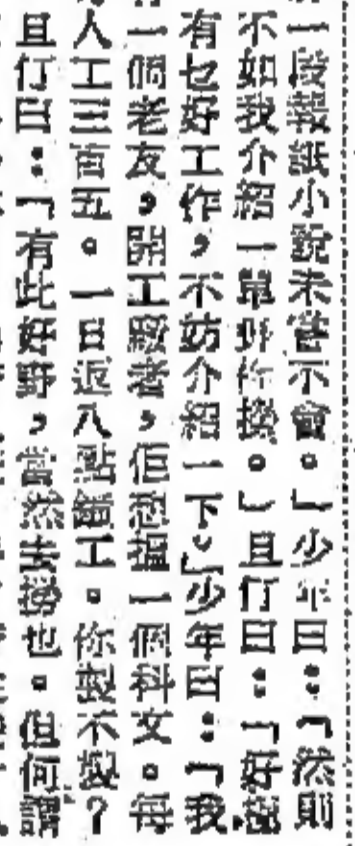 一段報紙小說未嘗不會。」少年曰：「然則
不如我介紹一單野你撈。」且仃曰：「好極
有乜好工作，不妨介紹一下。」少年曰：「我
一個老友，開工廠者，佢想搵一個科文。每
人工三百五。一日返八點鐘工。你製不製？
且仃曰：「有此好野，當然去撈也。但何謂